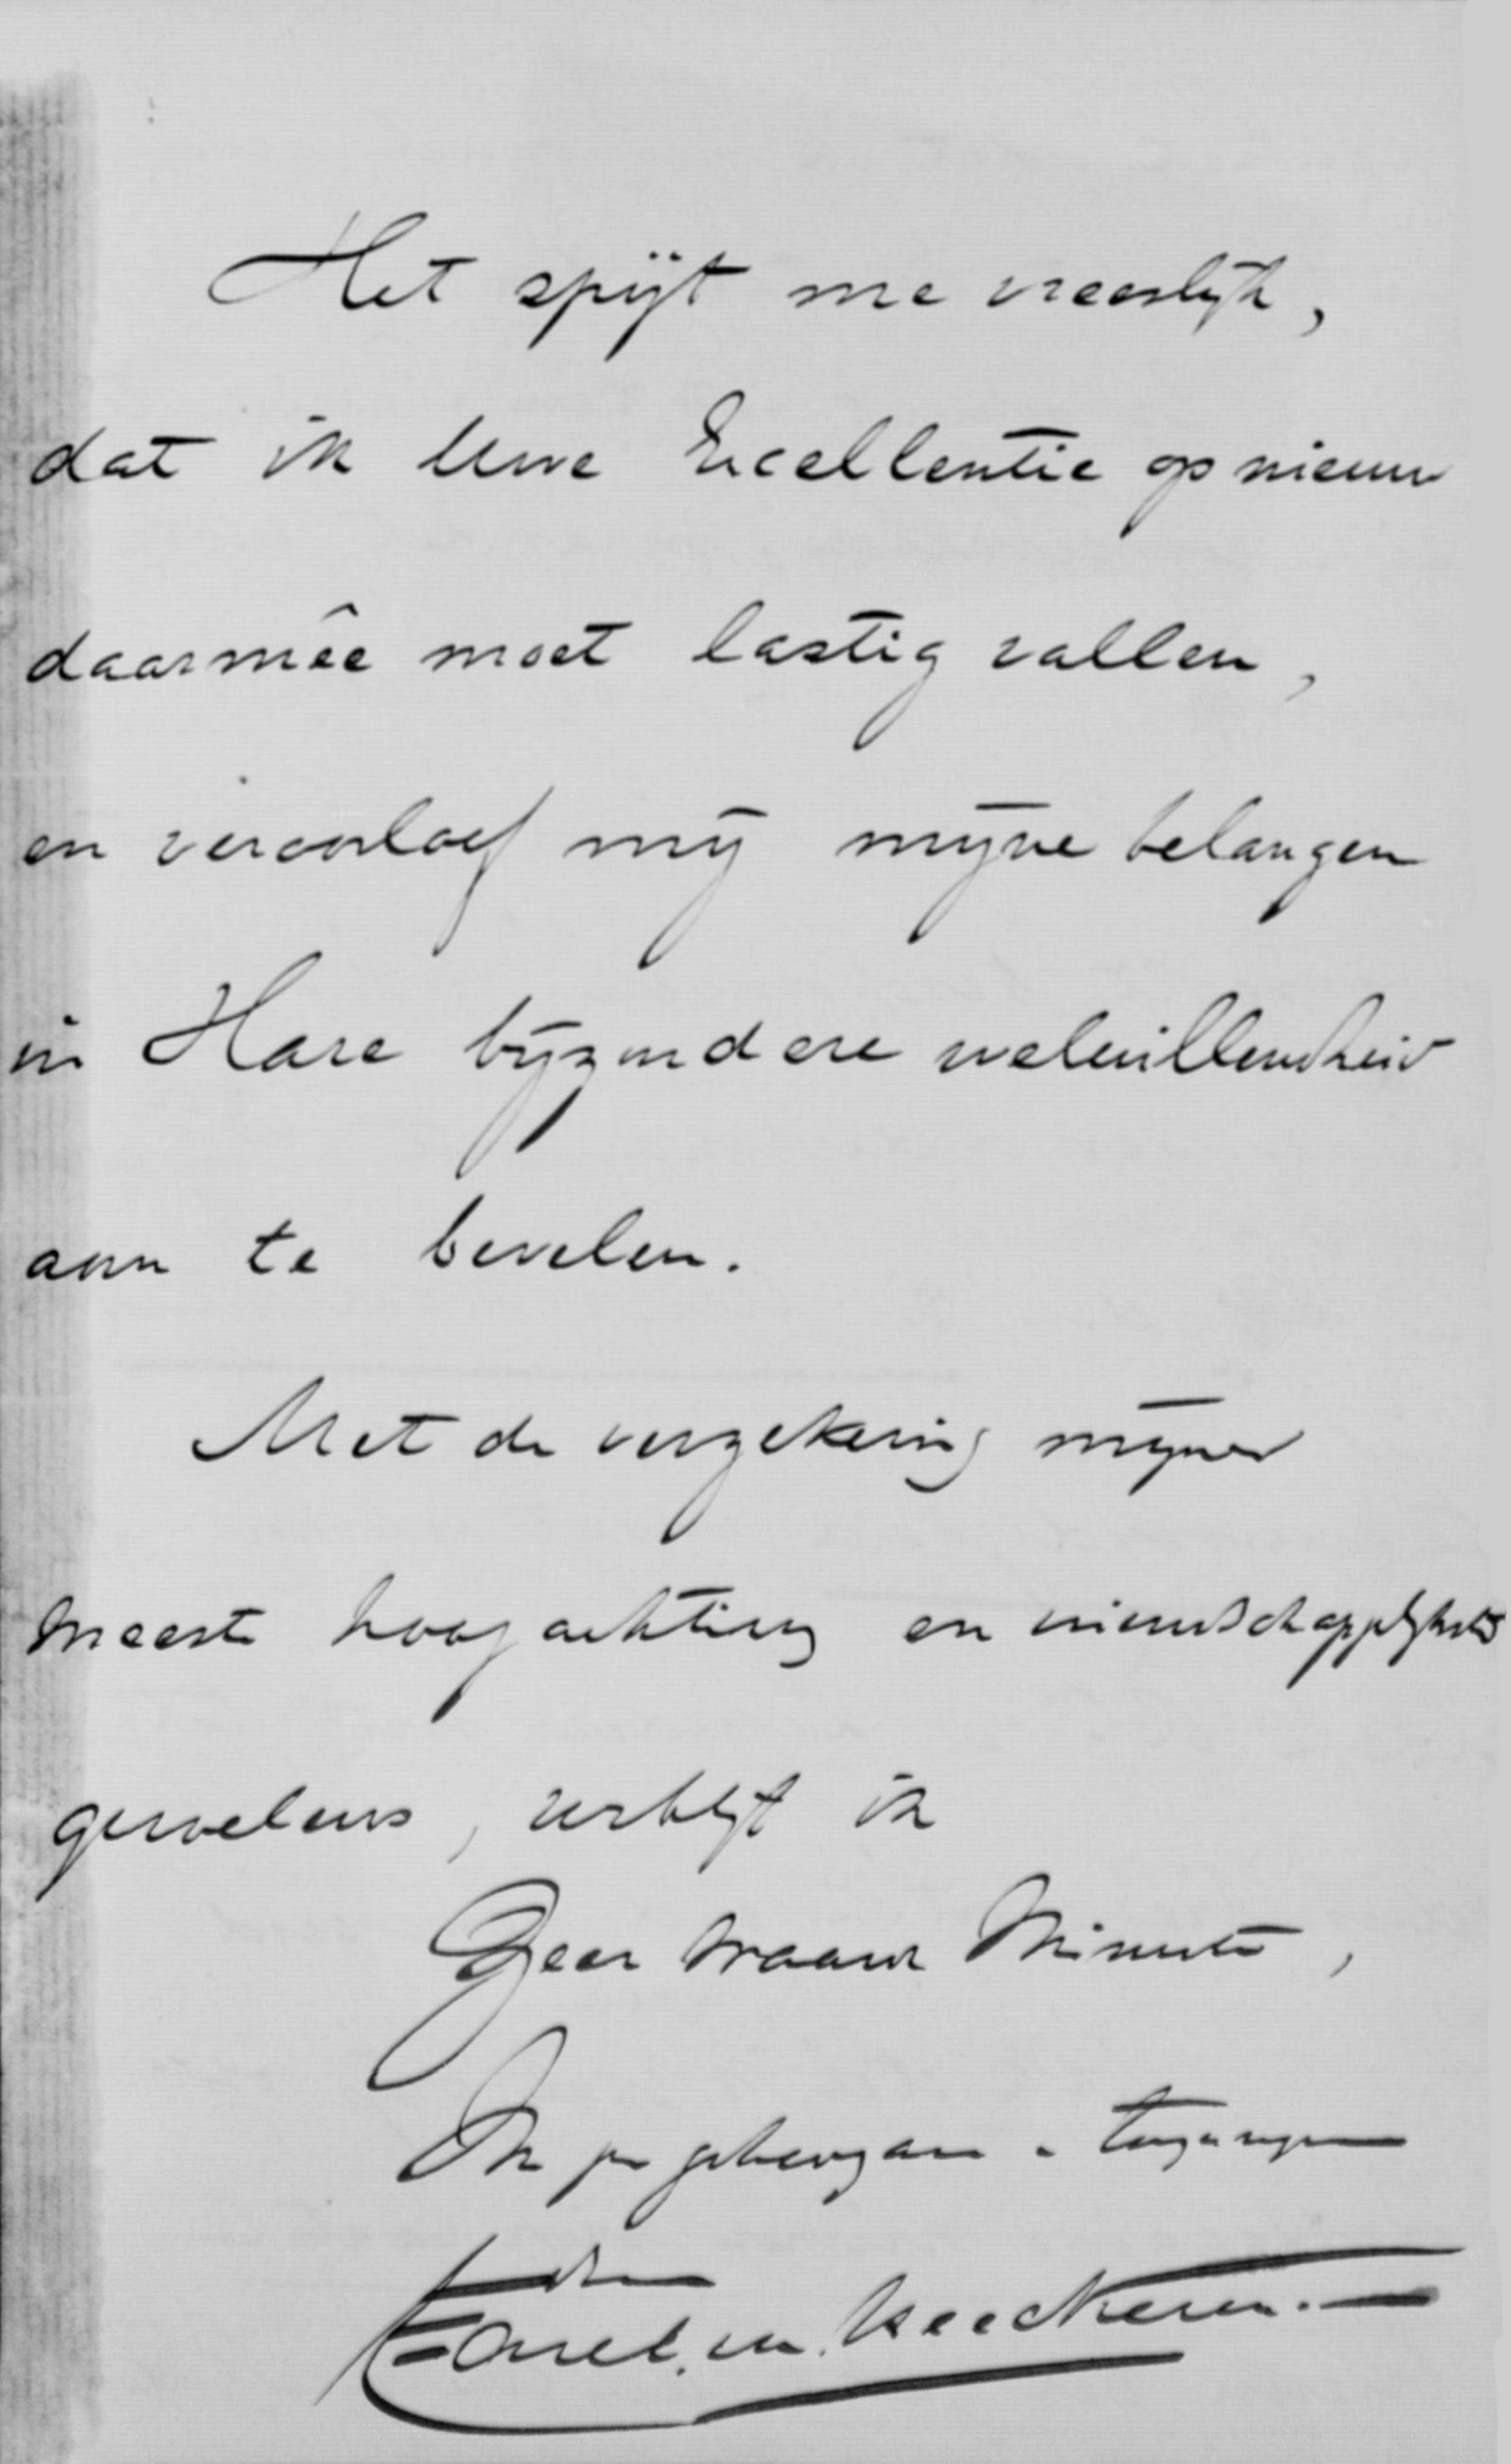 Het spijt me vreeslijk,
dat ik Uwe Excellentie op nieuw
daarmêe moet lastig vallen,
en veroorloof mij mijne belangen
in Hare bijzondere welwillendheid
aan te bevelen.
Met de verzekering mijner
meeste hoogachting en vriendschappelijkste
gevoelens, verblijf ik
Zeer waarde Minister,
Carel van Heeckeren.